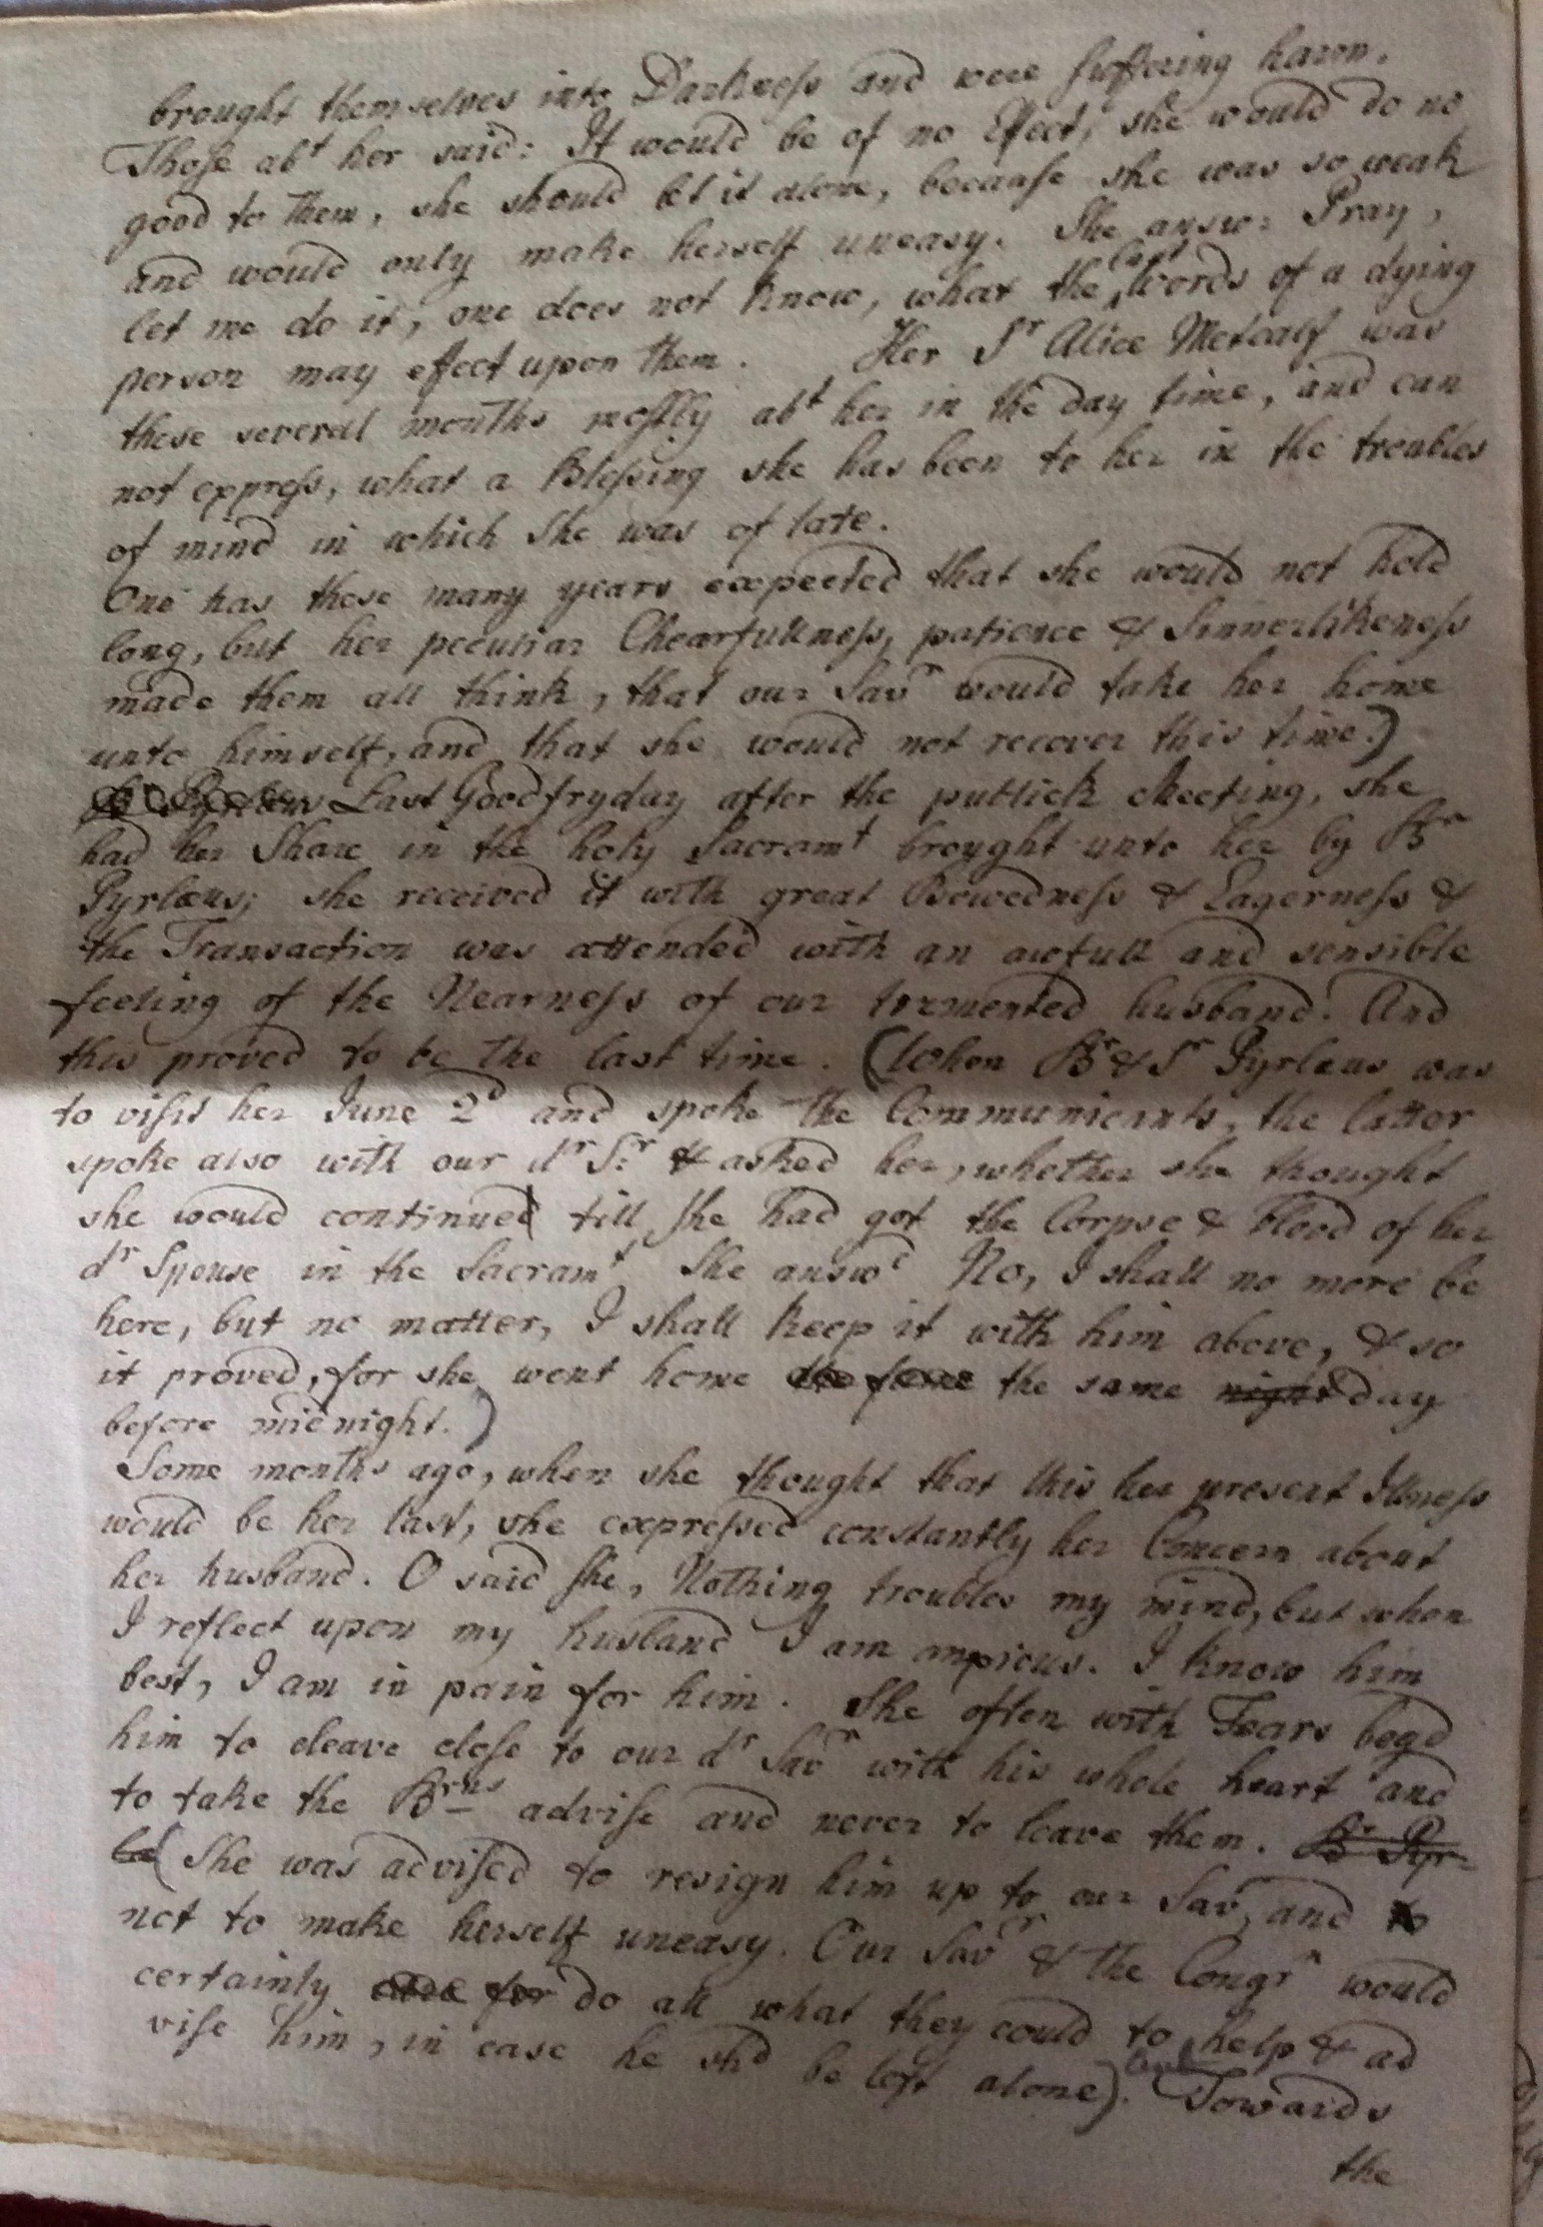 brought themselves into Darkness and were suffering harm.
Those abt her said: It would be of no Effect, she would do no
good to them, she should let it alone, because she was so weak
and would only make herself uneasy. She answ: Pray,
let me do it, one does not know, what the last words of a dying
person may effect upon them. Her Sr Alice Metcalf was
these several months mostly abt her in the day time, and can
not express, what a Blessing she has been to her in the troubles
of mind in which she was of late.
One has these many years expected that she would not hold
long, but her peculiar Chearfullness, patience & Sinnerlikeness
made them all think, that our Savr would take her home
unto himself, and that she would not recover this time.)
Last Goodfryday after the publick Meeting, she
had her Share in the holy Sacramt brought unto her by Br
Pyrlæus; she received it with great Bowedness & Eagerness &
the Transaction was attended with an awfull and sensible
feeling of the Nearness of our tormented husband. And
this proved to be the last time. (When Br & Sr Pyrlæus was
to visit her June 2d and spoke the Communicants, the latter
spoke also with our dr Sr & asked her, whether she thought
she would continued till she had got the Corpse & blood of her
dr Spouse in the Sacramt She answd No, I shall no more be
here, but no matter, I shall keep it with him above, & so
it proved, for she went home the same night day
before midnight.)
Some months ago, when she thought that this her present Illness
would be her last, she expressed constantly her Concern about
her husband. O said she, Nothing troubles my mind, but when
I reflect upon my husband I am anxious. I know him
best, I am in pain for him. She often with Tears begd
him to cleave close to our dr Savr with his whole heart and
to take the Brns advise and never to leave them. Br Pyr-
(She was advised to resign him up to our Savr, and to
not to make herself uneasy. Our Savr & the Congrn would
certainly care for do all what they could to help & ad
vise him, in case he shd be left alone). Towards
the